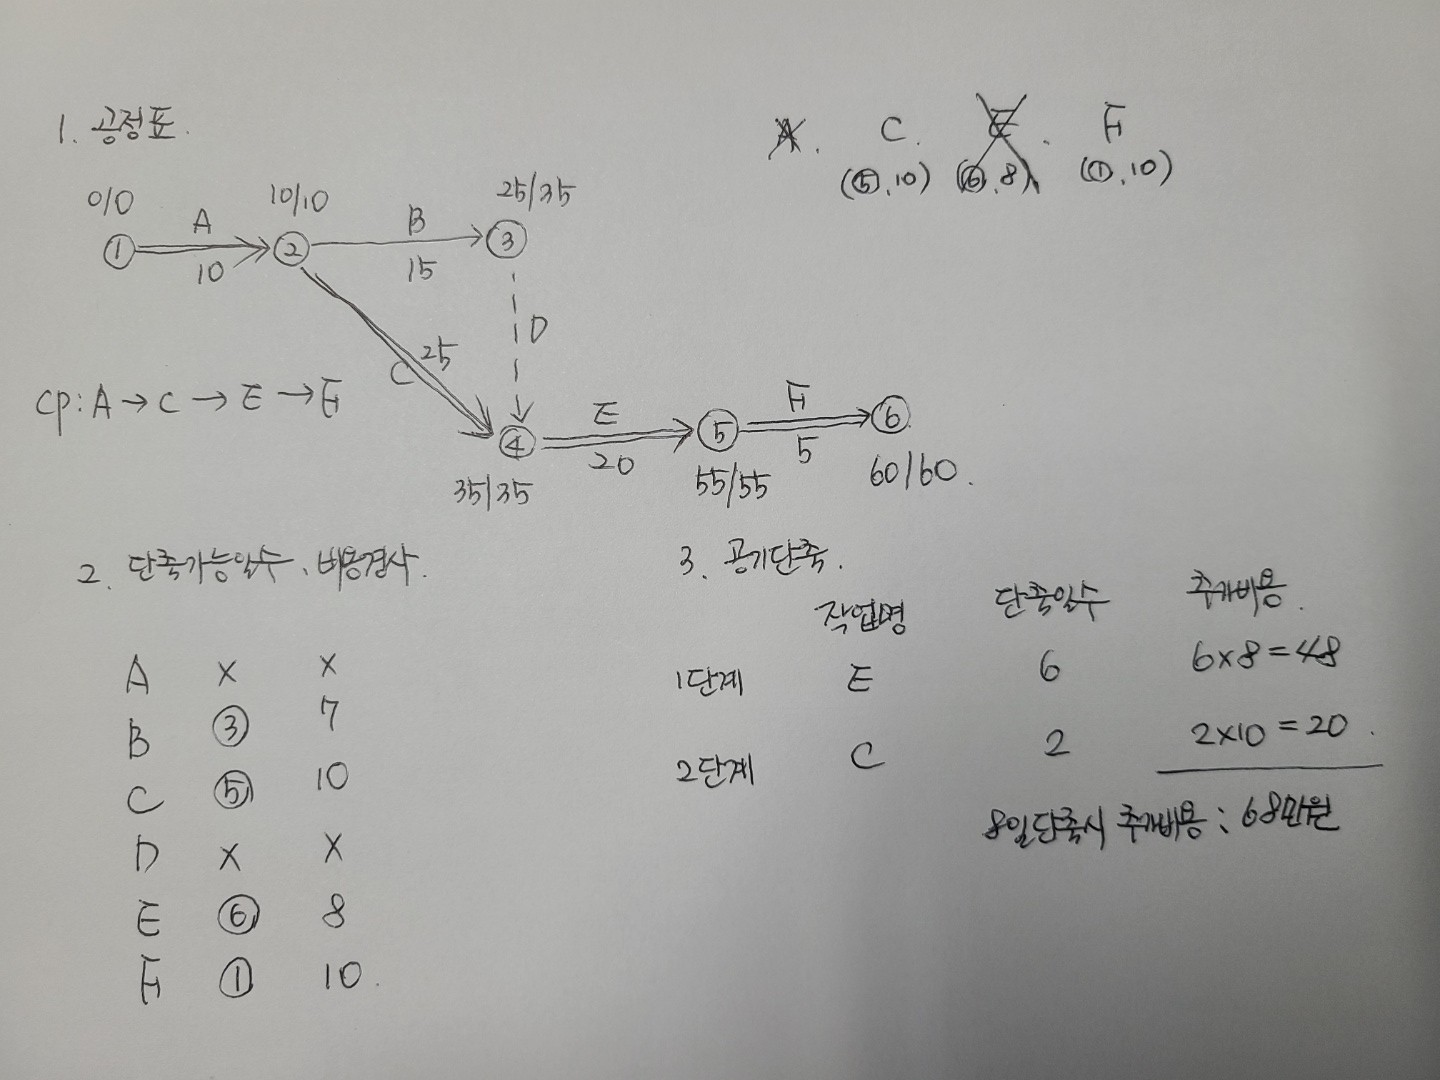 1. 공정표.
A. C. E. F
(⑤, 10) (⑥, 8) (①, 10)
0/0 10/10 25/35
① A ② B ③
10 15
C 25 D
CP: A → C → E → F
④ E ⑤ F ⑥
20 5
35/35 55/55 60/60.
2. 단축가능일수, 비용경사.
A X X
B ③ 7
C ⑤ 10
D X X
E ⑥ 8
F ① 10.
3. 공기단축.
작업명 단축일수 추가비용.
1단계 E 6 6x8=48
2단계 C 2 2x10=20.
8일단축시 추가비용: 68만원